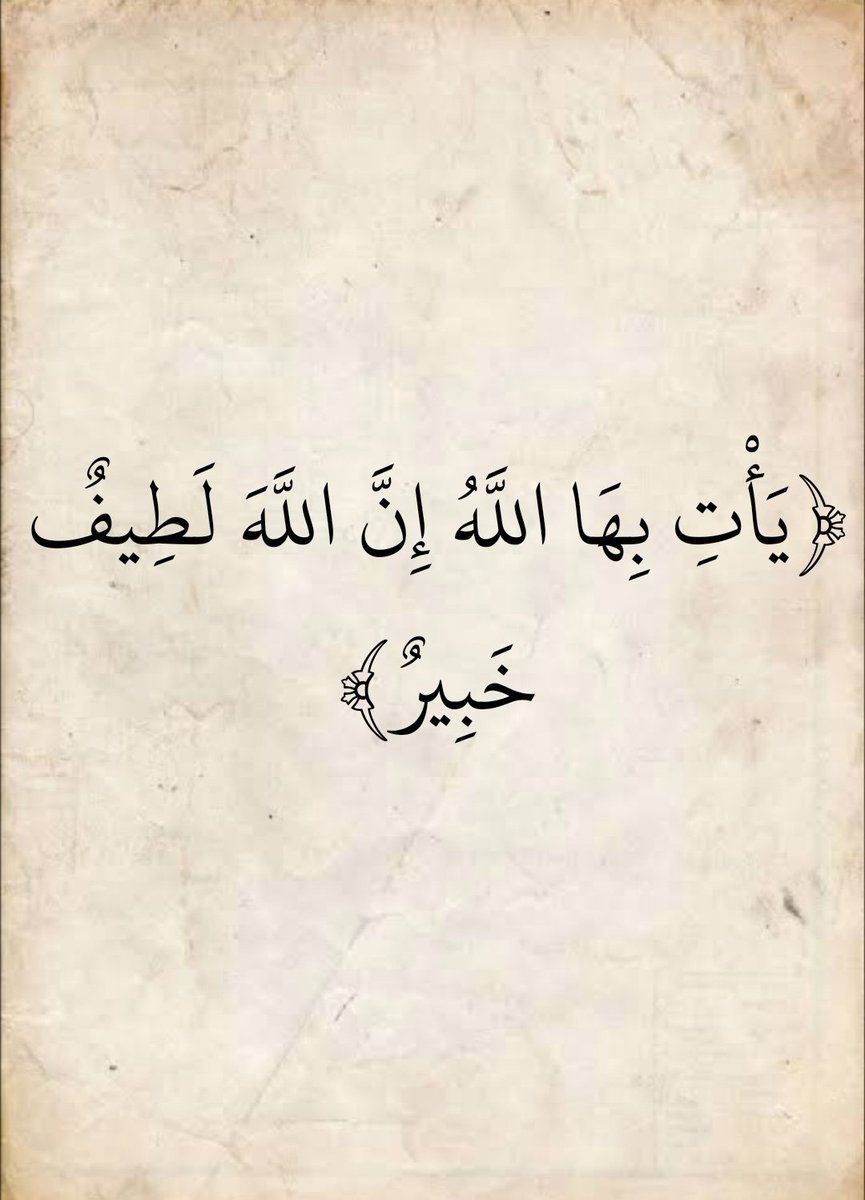 ﴿يَأْتِ بِهَا اللَّهُ إِنَّ اللَّهَ لَطِيفٌ
خَبِيرٌ﴾